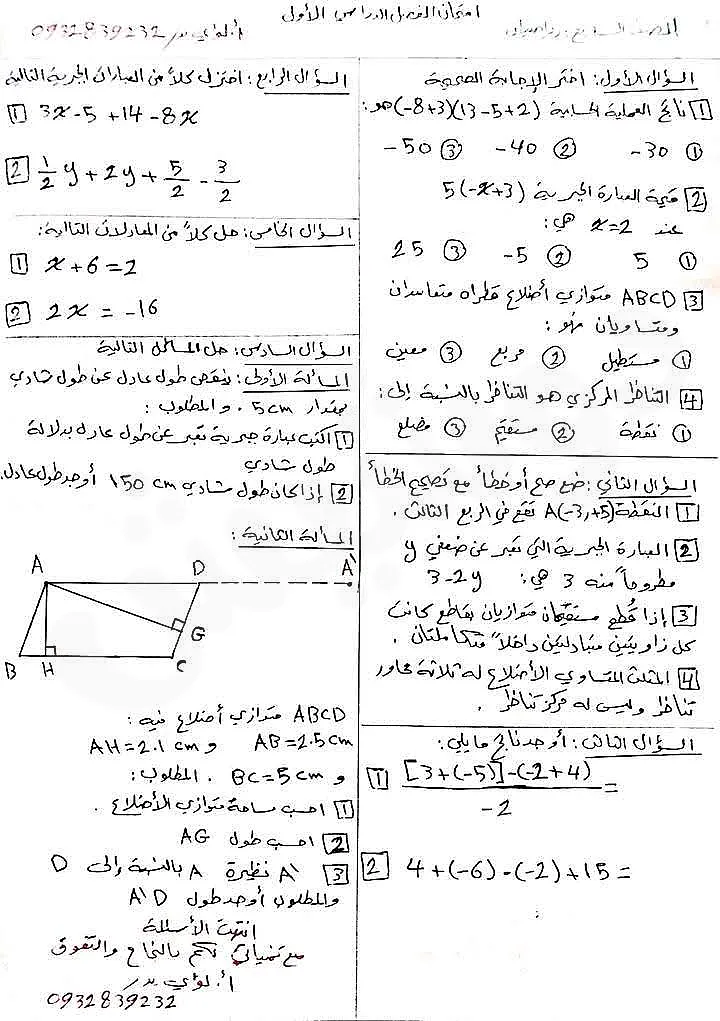 امتحان الفصل الدراسي الأول
الصف السابع: رياضيات
أ. لؤي بدر 0932839232
السؤال الأول: اختر الإجابة الصحيحة
1 ناتج العملية الحسابية (-8+3)(13-5+2) هو:
① -30 ② -40 ③ -50
2 قيمة العبارة الجبرية 5(-x+3)
عند x=2 هي:
① 5 ② -5 ③ 25
3 ABCD متوازي أضلاع قطراه متعامدان
ومتساويان فهو:
① مستطيل ② مربع ③ معين
4 التناظر المركزي هو التناظر بالنسبة إلى:
① نقطة ② مستقيم ③ مضلع
السؤال الثاني: ضع صح أو خطأ مع تصحيح الخطأ
1 النقطة A(-3,+5) تقع في الربع الثالث.
2 العبارة الجبرية التي تعبر عن ضعفي y
مطروحاً منه 3 هي: 3-2y
3 إذا قُطع مستقيمان متوازيان بقاطع كانت
كل زاويتين متبادلتين داخلاً متكاملتان.
4 المثلث المتساوي الأضلاع له ثلاثة محاور
تناظر وليس له مركز تناظر.
السؤال الثالث: أوجد ناتج مايلي:
1 [3+(-5)]-(-2+4) =
-2
2 4+(-6)-(-2)+15=
السؤال الرابع: اختزل كلاً من العبارات الجبرية التالية
1 3x-5+14-8x
2 1/2 y + 2y + 5/2 - 3/2
السؤال الخامس: حل كلاً من المعادلات التالية:
1 x+6=2
2 2x = -16
السؤال السادس: حل المسائل التالية
المسألة الأولى: ينقص طول عادل عن طول شادي
بمقدار 5cm. والمطلوب:
1 اكتب عبارة جبرية تعبر عن طول عادل بدلالة
طول شادي
2 إذا كان طول شادي 150 cm أوجد طول عادل.
المسألة الثانية:
A D A'
G
B H C
ABCD متوازي أضلاع فيه:
AB=2.5cm و AH=2.1cm
و BC=5cm. المطلوب:
1 احسب مساحة متوازي الأضلاع.
2 احسب طول AG
3 A' نظيرة A بالنسبة إلى D
والمطلوب أوجد طول A'D
انتهت الأسئلة
مع تمنياتي لكم بالنجاح والتفوق
أ. لؤي بدر
0932839232